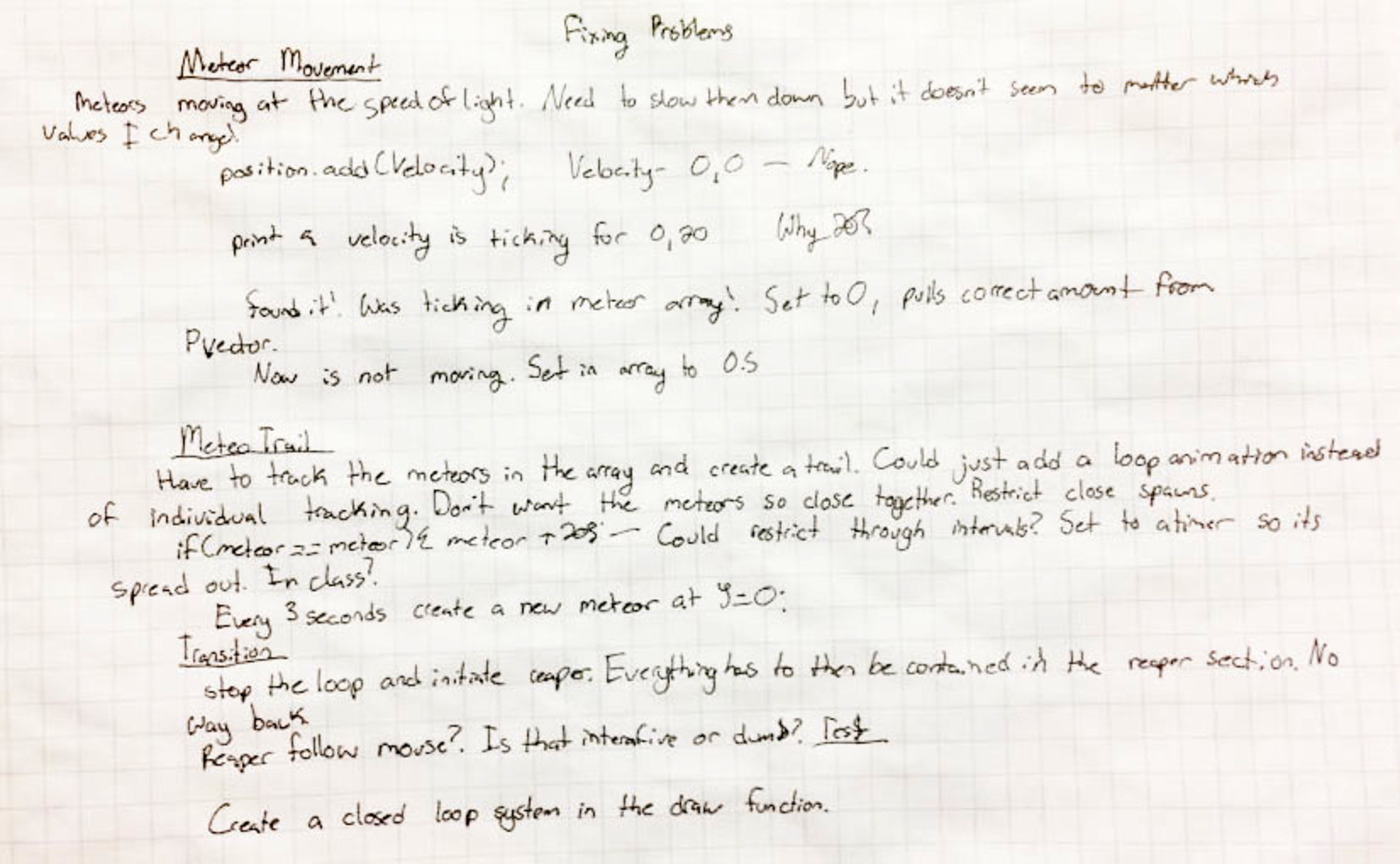 Fixing Problems
Meteor Movement
Meteors moving at the speed of light. Need to slow them down but it doesn't seem to matter which
values I change!
position.add(Velocity); Velocity- 0,0 — Nope.
print a velocity is ticking for 0,20 Why 20?
found it! Was ticking in meteor array! Set to 0, pulls correct amount from
Pvector.
Now is not moving. Set in array to 0.5
Meteo Trail
Have to track the meteors in the array and create a trail. Could just add a loop animation instead
of individual tracking. Don't want the meteors so close together. Restrict close spawns.
if(meteor == meteor){ meteor + 20} — Could restrict through intervals? Set to a timer so its
spread out. In class?
Every 3 seconds create a new meteor at y=0;
Transition
stop the loop and initiate reaper. Everything has to then be contained in the reaper section. No
way back
Reaper follow mouse? Is that interative or dumb? Test
Create a closed loop system in the draw function.